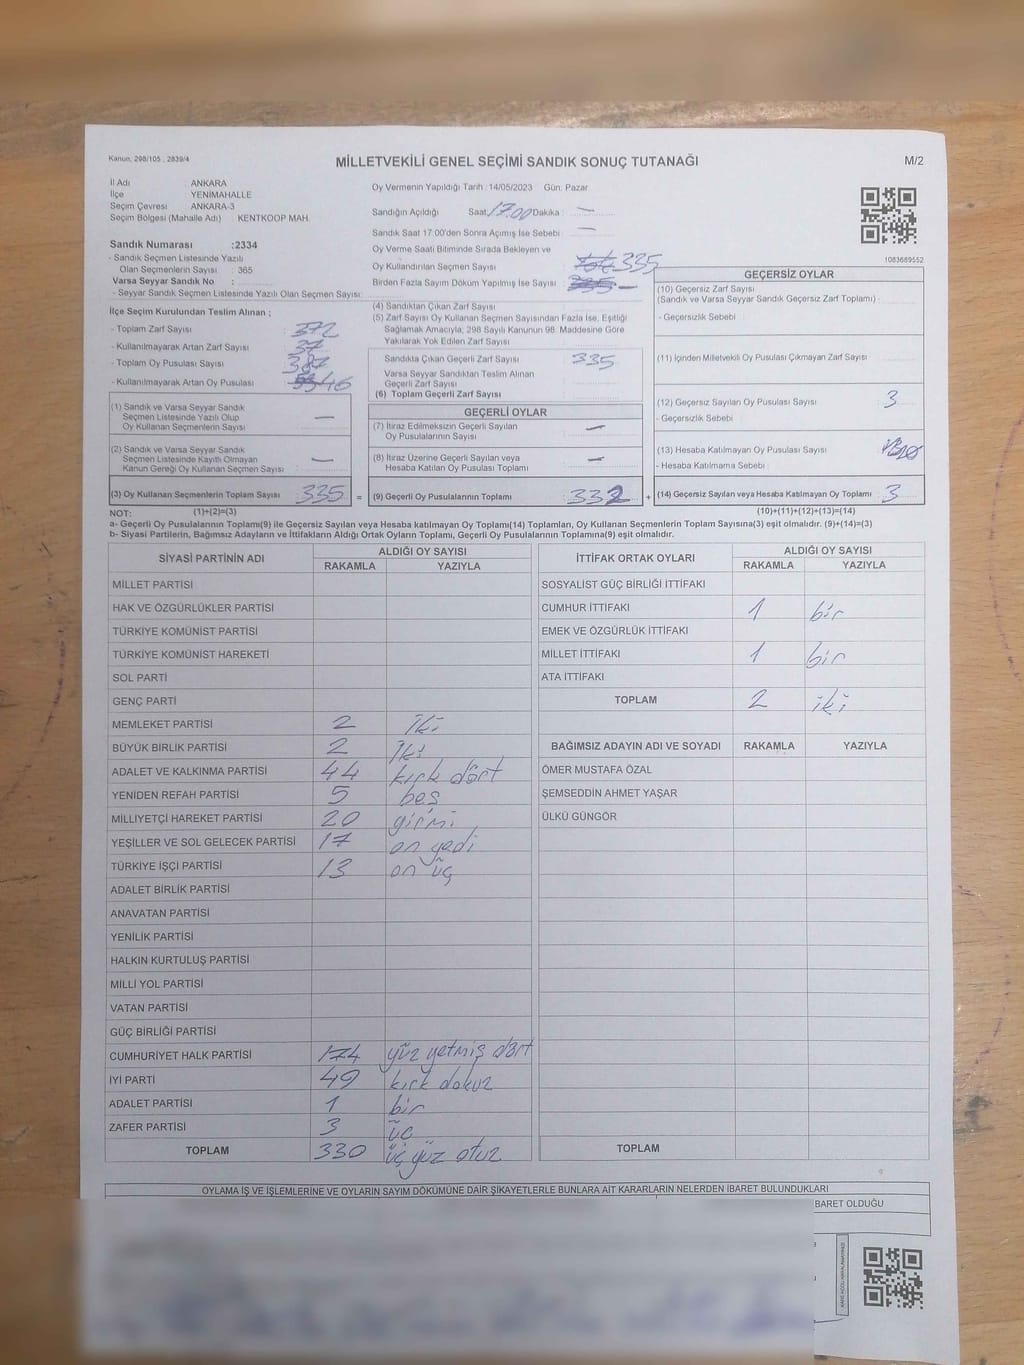 Kanun, 298/105 , 2839/4
MİLLETVEKİLİ GENEL SEÇİMİ SANDIK SONUÇ TUTANAĞI
M/2
İl Adı : ANKARA
İlçe : YENİMAHALLE
Seçim Çevresi : ANKARA-3
Seçim Bölgesi (Mahalle Adı) : KENTKOOP MAH.
Sandık Numarası :2334
- Sandık Seçmen Listesinde Yazılı
Olan Seçmenlerin Sayısı : 365
Varsa Seyyar Sandık No :
- Seyyar Sandık Seçmen Listesinde Yazılı Olan Seçmen Sayısı:
İlçe Seçim Kurulundan Teslim Alınan ;
- Toplam Zarf Sayısı : 372
- Kullanılmayarak Artan Zarf Sayısı : 37
- Toplam Oy Pusulası Sayısı :
- Kullanılmayarak Artan Oy Pusulası : 46
(1) Sandık ve Varsa Seyyar Sandık
Seçmen Listesinde Yazılı Olup
Oy Kullanan Seçmenlerin Sayısı : —
(2) Sandık ve Varsa Seyyar Sandık
Seçmen Listesinde Kayıtlı Olmayan
Kanun Gereği Oy Kullanan Seçmen Sayısı : —
(3) Oy Kullanan Seçmenlerin Toplam Sayısı : 335 =
Oy Vermenin Yapıldığı Tarih : 14/05/2023 Gün: Pazar
Sandığın Açıldığı Saat 17.00 Dakika : —
Sandık Saat 17:00'den Sonra Açımış İse Sebebi : —
Oy Verme Saati Bitiminde Sırada Bekleyen ve
Oy Kullandırılan Seçmen Sayısı : 335
Birden Fazla Sayım Döküm Yapılmış İse Sayısı : —
(4) Sandıktan Çıkan Zarf Sayısı :
(5) Zarf Sayısı Oy Kurulanan Seçmen Sayısından Fazla İse, Eşitliği
Sağlamak Amacıyla, 298 Sayılı Kanunun 98. Maddesine Göre
Yakılarak Yok Edilen Zarf Sayısı :
Sandıkta Çıkan Geçerli Zarf Sayısı : 335
Varsa Seyyar Sandıktan Teslim Alınan
Geçerli Zarf Sayısı :
(6) Toplam Geçerli Zarf Sayısı :
GEÇERLİ OYLAR
(7) İtiraz Edilmeksizin Geçerli Sayılan
Oy Pusulalarının Sayısı : —
(8) İtiraz Üzerine Geçerli Sayılan veya
Hesaba Katılan Oy Pusulası Toplamı : —
(9) Geçerli Oy Pusulalarının Toplamı : 332 +
1083689552
GEÇERSİZ OYLAR
(10) Geçersiz Zarf Sayısı
(Sandık ve Varsa Seyyar Sandık Geçersiz Zarf Toplamı) :
- Geçersizlik Sebebi :
(11) İçinden Milletvekili Oy Pusulası Çıkmayan Zarf Sayısı :
(12) Geçersiz Sayılan Oy Pusulası Sayısı : 3
- Geçersizlik Sebebi :
(13) Hesaba Katılmayan Oy Pusulası Sayısı :
- Hesaba Katılmama Sebebi :
(14) Geçersiz Sayılan veya Hesaba Katılmayan Oy Toplamı : 3
NOT: (1)+(2)=(3) (10)+(11)+(12)+(13)=(14)
a- Geçerli Oy Pusulalarının Toplamı(9) ile Geçersiz Sayılan veya Hesaba katılmayan Oy Toplamı(14) Toplamları, Oy Kullanan Seçmenlerin Toplam Sayısına(3) eşit olmalıdır. (9)+(14)=(3)
b- Siyasi Partilerin, Bağımsız Adayların ve İttifakların Aldığı Ortak Oyların Toplamı, Geçerli Oy Pusulalarının Toplamına(9) eşit olmalıdır.
SİYASİ PARTİNİN ADI ALDIĞI OY SAYISI
RAKAMLA YAZIYLA
MİLLET PARTİSİ
HAK VE ÖZGÜRLÜKLER PARTİSİ
TÜRKİYE KOMÜNİST PARTİSİ
TÜRKİYE KOMÜNİST HAREKETİ
SOL PARTİ
GENÇ PARTİ
MEMLEKET PARTİSİ 2 iki
BÜYÜK BİRLİK PARTİSİ 2 iki
ADALET VE KALKINMA PARTİSİ 44 kırk dört
YENİDEN REFAH PARTİSİ 5 beş
MİLLİYETÇİ HAREKET PARTİSİ 20 girmi
YEŞİLLER VE SOL GELECEK PARTİSİ 17 on yedi
TÜRKİYE İŞÇİ PARTİSİ 13 on üç
ADALET BİRLİK PARTİSİ
ANAVATAN PARTİSİ
YENİLİK PARTİSİ
HALKIN KURTULUŞ PARTİSİ
MİLLİ YOL PARTİSİ
VATAN PARTİSİ
GÜÇ BİRLİĞİ PARTİSİ
CUMHURİYET HALK PARTİSİ 174 yüz yetmiş dört
İYİ PARTİ 49 kırk dokuz
ADALET PARTİSİ 1 bir
ZAFER PARTİSİ 3 üç
TOPLAM 330 üç yüz otuz
İTTİFAK ORTAK OYLARI ALDIĞI OY SAYISI
RAKAMLA YAZIYLA
SOSYALİST GÜÇ BİRLİĞİ İTTİFAKI
CUMHUR İTTİFAKI 1 bir
EMEK VE ÖZGÜRLÜK İTTİFAKI
MİLLET İTTİFAKI 1 bir
ATA İTTİFAKI
TOPLAM 2 iki
BAĞIMSIZ ADAYIN ADI VE SOYADI RAKAMLA YAZIYLA
ÖMER MUSTAFA ÖZAL
ŞEMSEDDİN AHMET YAŞAR
ÜLKÜ GÜNGÖR
TOPLAM
OYLAMA İŞ VE İŞLEMLERİNE VE OYLARIN SAYIM DÖKÜMÜNE DAİR ŞİKAYETLERLE BUNLARA AİT KARARLARIN NELERDEN İBARET BULUNDUKLARI
BARET OLDUĞU